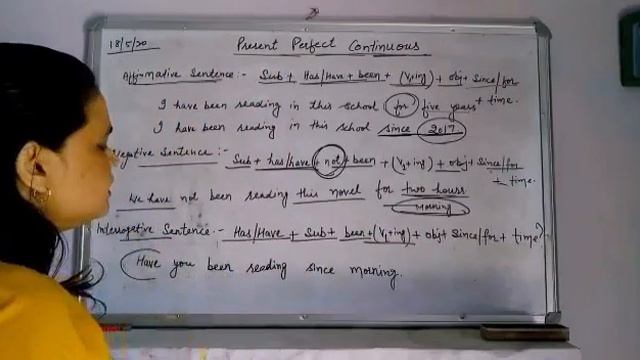 18/5/20
Present Perfect Continuous
Affirmative Sentence :- Sub + Has/Have + been + (V₁+ing) + obj + Since/for + time.
I have been reading in this school for five years
I have been reading in this school since 2017
Negative Sentence :- Sub + has/have + not + been + (V₁+ing) + obj + Since/for + time.
We have not been reading this novel for two hours
morning
Interrogative Sentence :- Has/Have + Sub + been + (V₁+ing) + obj + Since/for + time?
Have you been reading since morning.